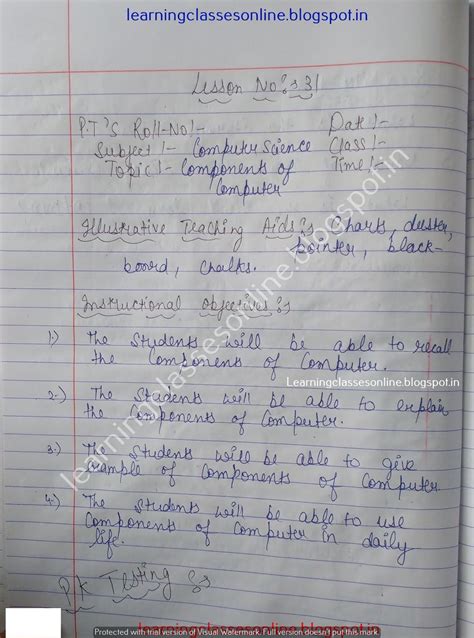 learningclassesonline.blogspot.in
Lesson No:s 31
P.T'S Roll-No!- Dat !-
Subject !- Computer Science Class!-
Topic !- Components of Time!-
Computer
Illustrative Teaching Aids :s Charts, duster,
pointer, black-
board, chalks.
Instructional objectives :s
1.) The Students will be able to recall
the Components of Computer.
Learningclassesonline.blogspot.in
2.) The Students will be able to explain
the Components of Computer.
3.) The Students will be able to give
Example of Components of Computer
4.) The Students will be able to use
Components of Computer in daily
life.
P.K Testing :s
learningclassesonline.blogspot.in
Protected with trial version of Visual Watermark. Full version doesn't put this mark.
learningclassesonline.blogspot.in